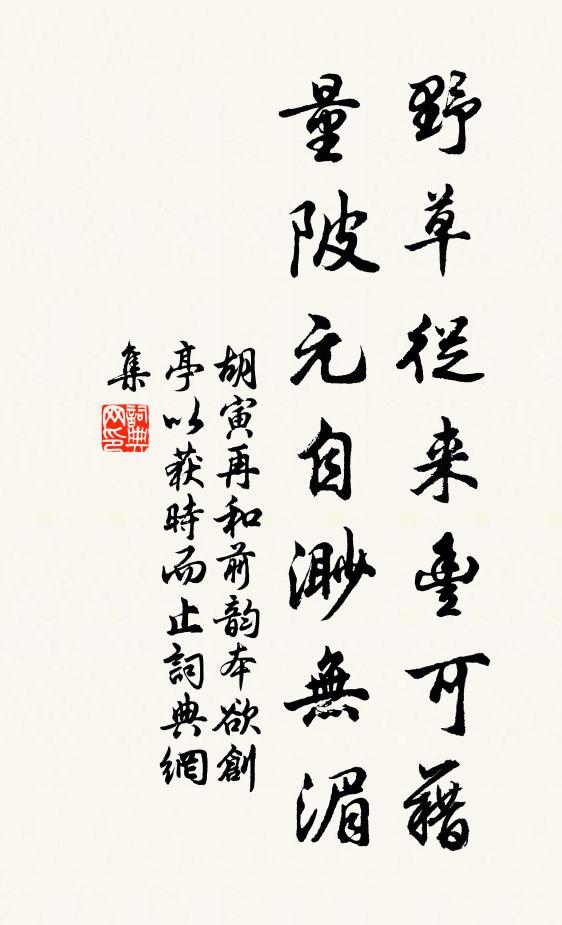 野草從来豐可藉
量陂元自渺無湄
胡寅再和前韵本欲創
亭以获時而止詞典網
集
詞典
网印